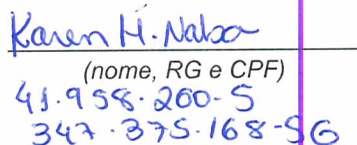 Karen H. Nabo
(nome, RG e CPF)
41.958.200-5
347.375.168-56